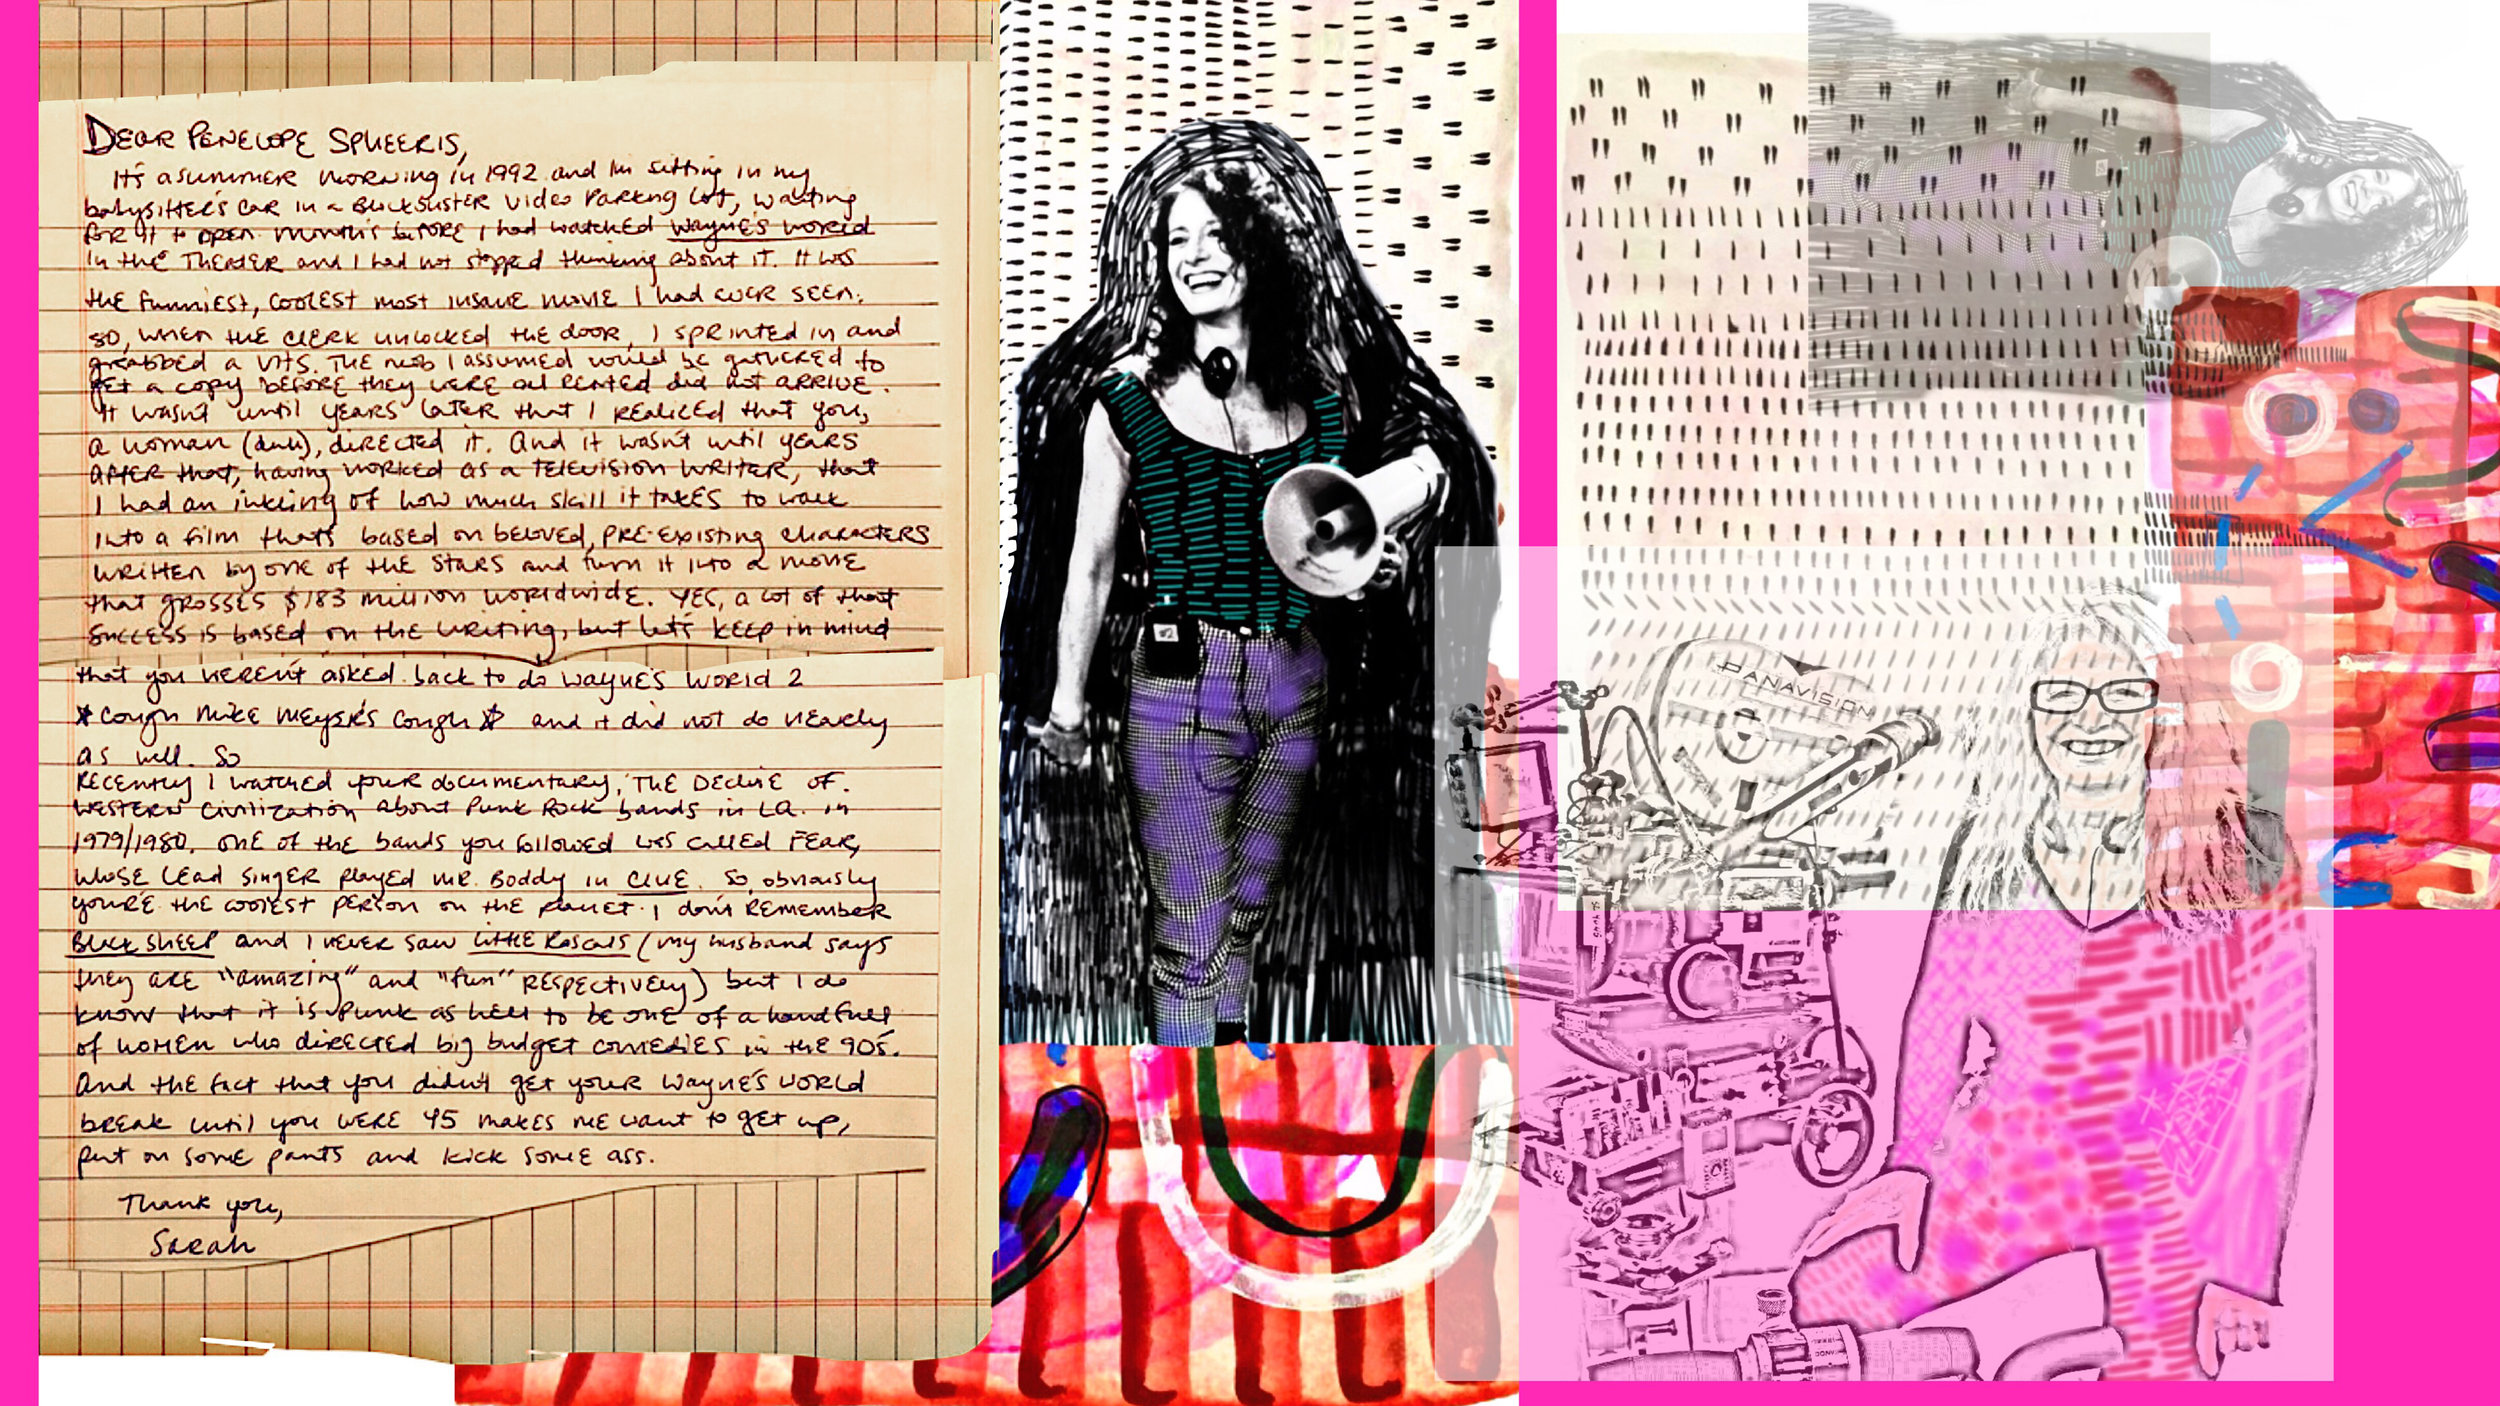 Dear Penelope Spheeris,
It's a summer morning in 1992 and I'm sitting in my
babysitter's car in a Blockbuster Video parking lot, waiting
for it to open. Months before I had watched Wayne's World
in the theater and I had not stopped thinking about it. It was
the funniest, coolest most insane movie I had ever seen.
So, when the clerk unlocked the door, I sprinted in and
grabbed a VHS. The mob I assumed would be gathered to
get a copy before they were all rented did not arrive.
It wasn't until years later that I realized that you,
a woman (duh), directed it. And it wasn't until years
after that, having worked as a television writer, that
I had an inkling of how much skill it takes to walk
into a film that's based on beloved, pre-existing characters
written by one of the stars and turn it into a movie
that grosses $183 million worldwide. Yes, a lot of that
success is based on the writing, but let's keep in mind
that you weren't asked back to do Wayne's World 2
*cough Mike Meyers cough* and it did not do nearly
as well. So
Recently I watched your documentary, The Decline of
Western Civilization about punk rock bands in LA in
1979/1980. One of the bands you followed was called Fear,
whose lead singer played Mr. Boddy in Clue. So, obviously
you're the coolest person on the planet. I don't remember
Black Sheep and I never saw Little Rascals (my husband says
they are "amazing" and "fun" respectively) but I do
know that it is punk as hell to be one of a handfull
of women who directed big budget comedies in the 90s.
And the fact that you didn't get your Wayne's World
break until you were 45 makes me want to get up,
put on some pants and kick some ass.
Thank you,
Sarah
PANAVISION